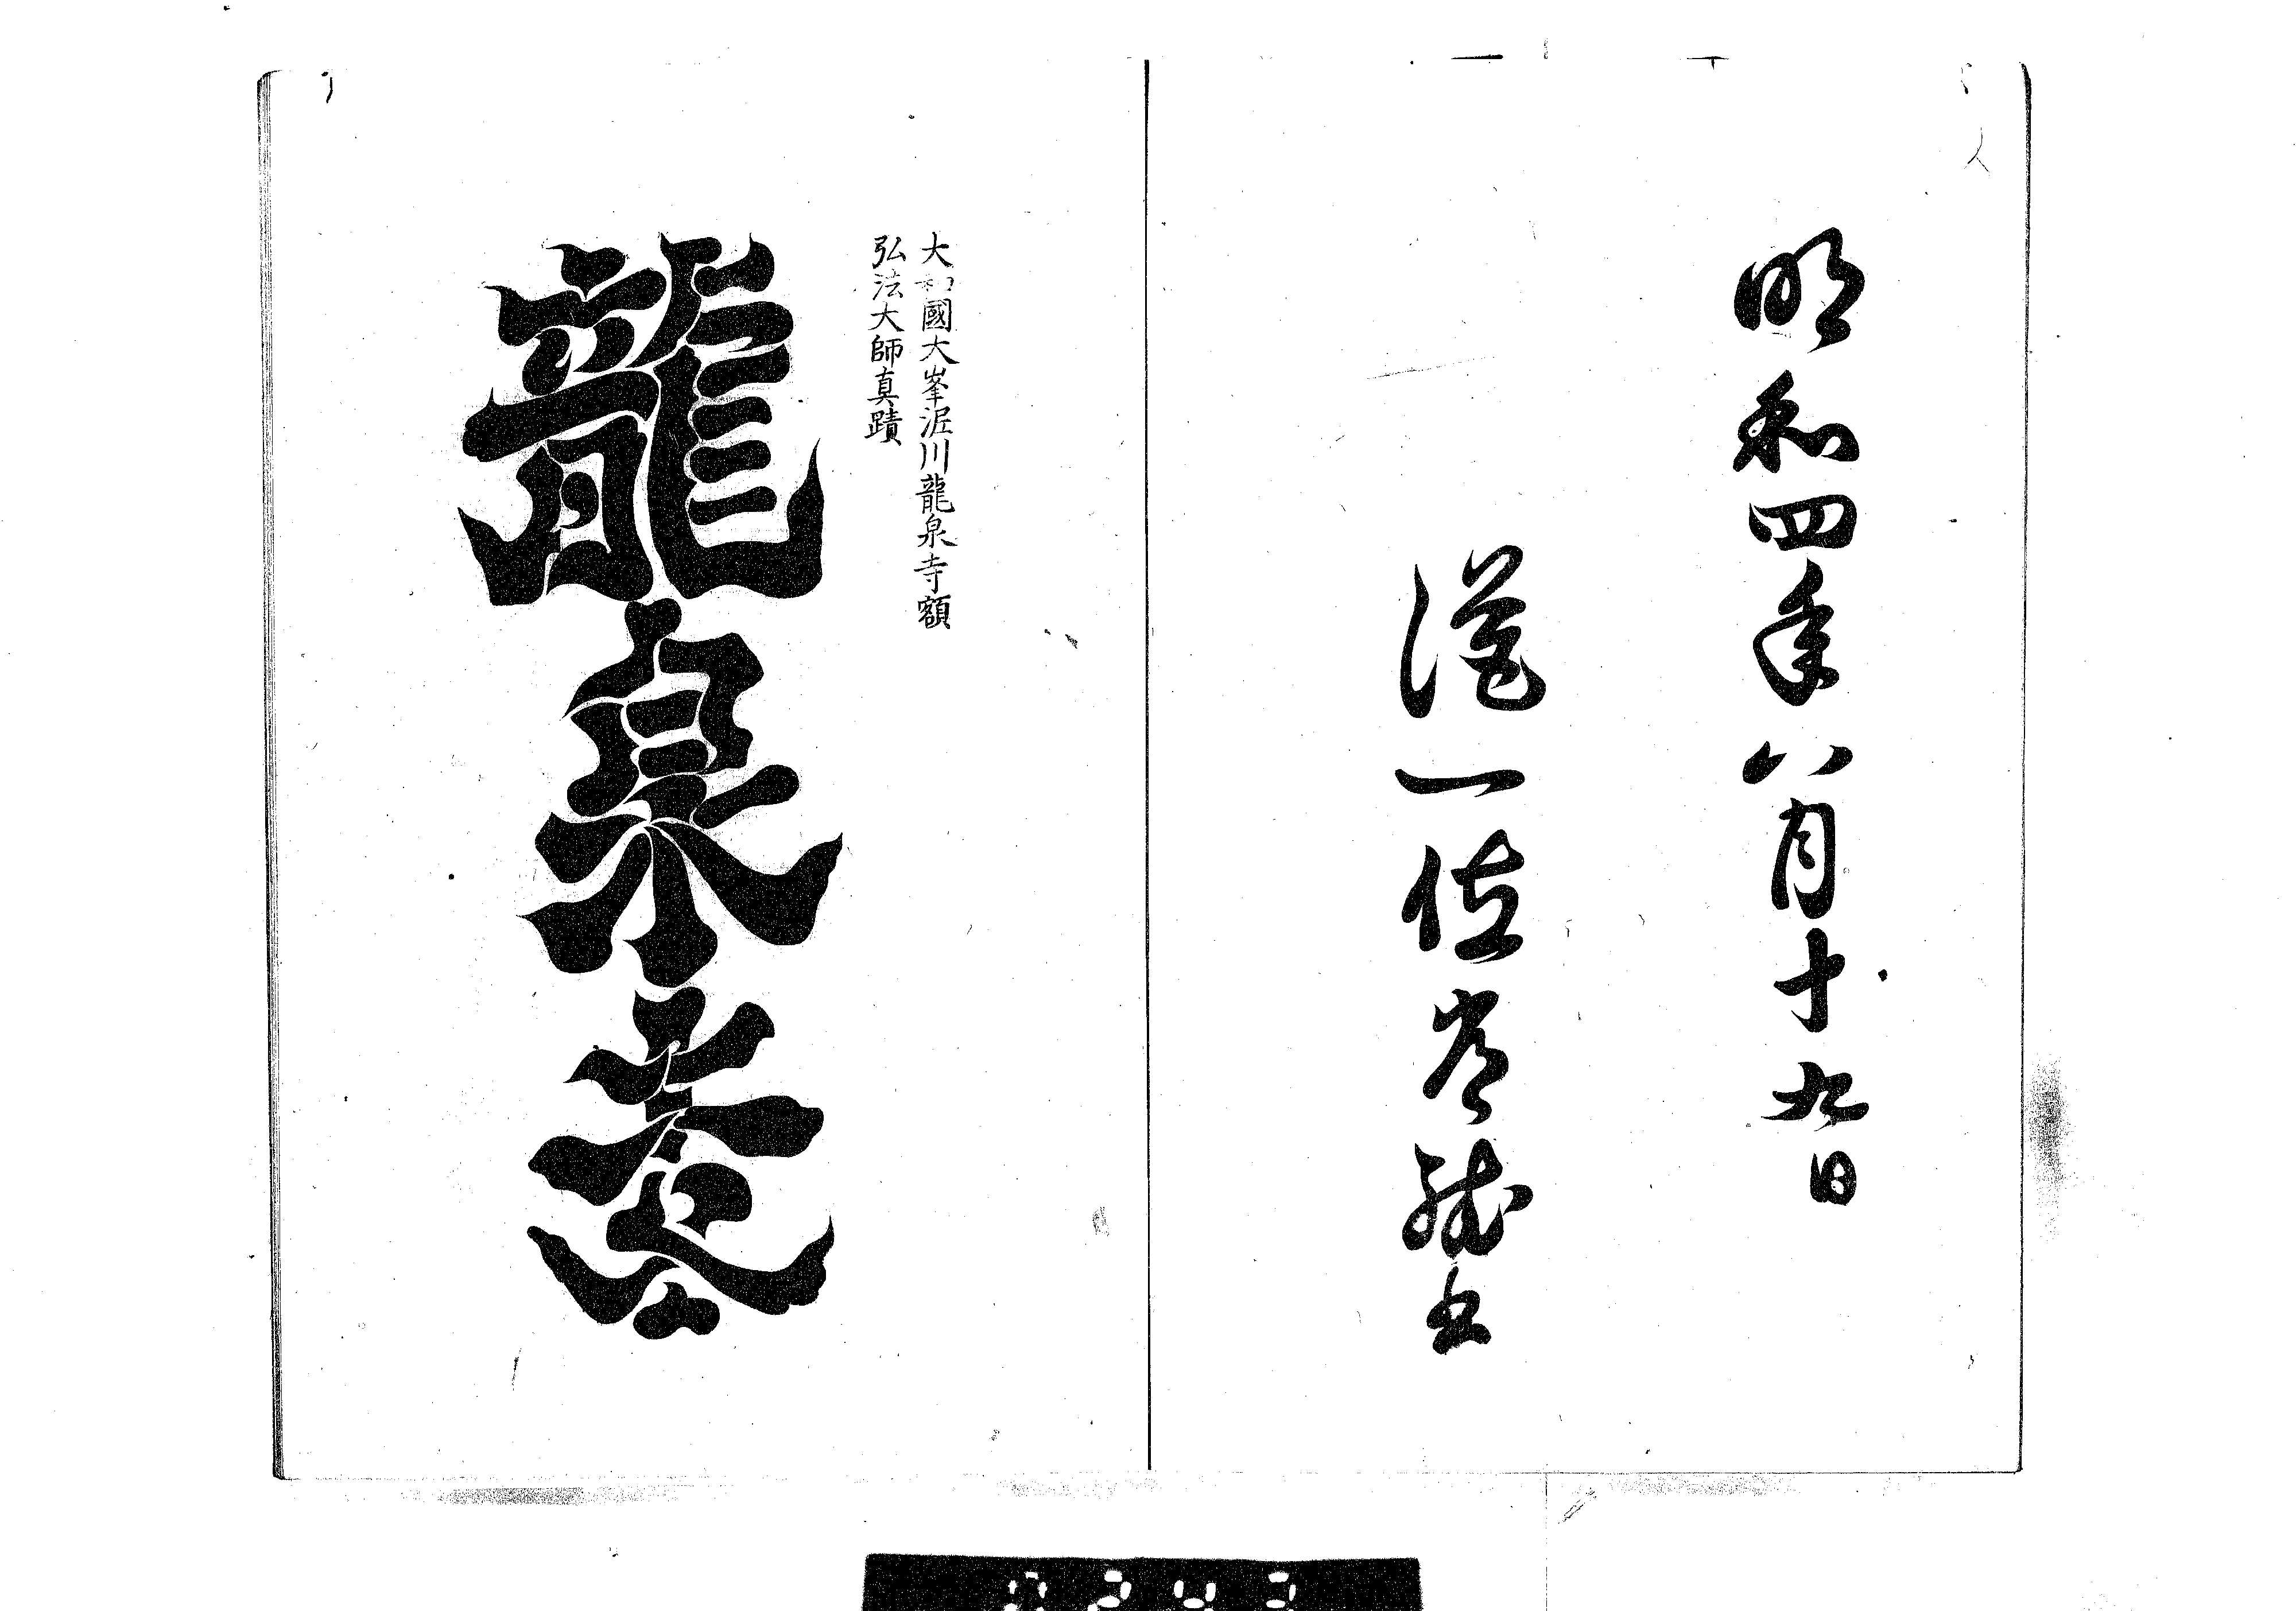 明和四年八月十九日
従一位常雅書
大和國大峯泥川龍泉寺額
弘法大師真蹟
龍泉寺